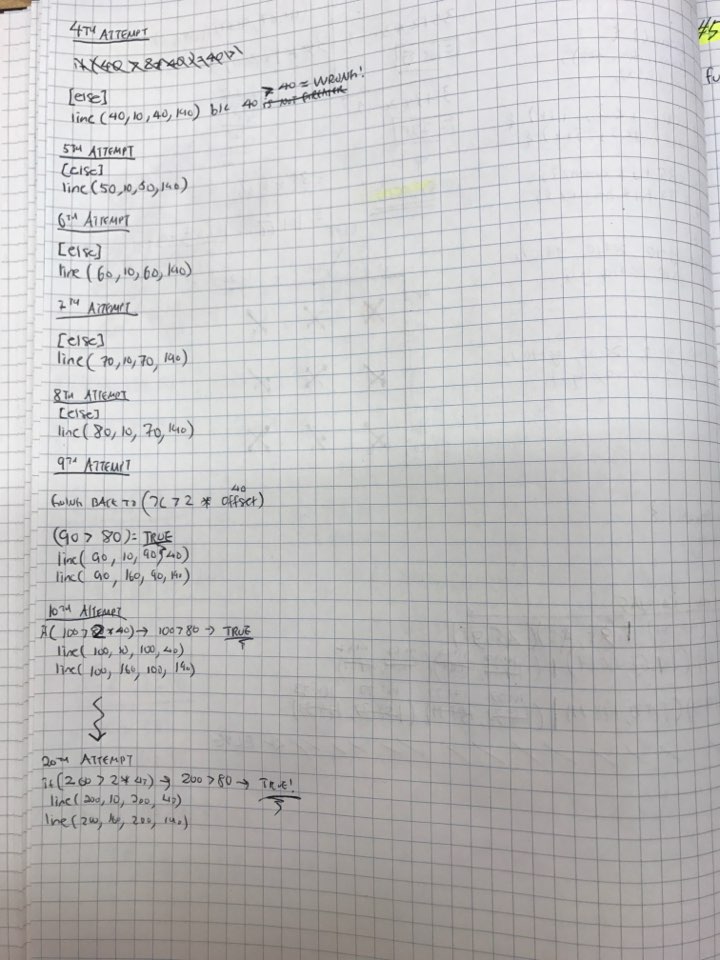 4TH ATTEMPT
[else]
line (40, 10, 40, 140) b/c 40 > 40 = WRONG!
5TH ATTEMPT
[else]
line (50, 10, 50, 140)
6TH ATTEMPT
[else]
line (60, 10, 60, 140)
7TH ATTEMPT
[else]
line( 70, 10, 70, 140)
8TH ATTEMPT
[else]
line( 80, 10, 70, 140)
9TH ATTEMPT
40
BACK TO (x > 2 * offset)
(90 > 80) = TRUE
line( 90, 10, 90, 40)
line( 90, 160, 90, 190)
10TH ATTEMPT
if( 100 > 2 * 40) → 100 > 80 → TRUE
line( 100, 10, 100, 40)
line( 100, 160, 100, 190)
20TH ATTEMPT
if(200 > 2 * 40) → 200 > 80 → TRUE!
line(200, 10, 200, 40)
line(200, 160, 200, 190)
#5
fu